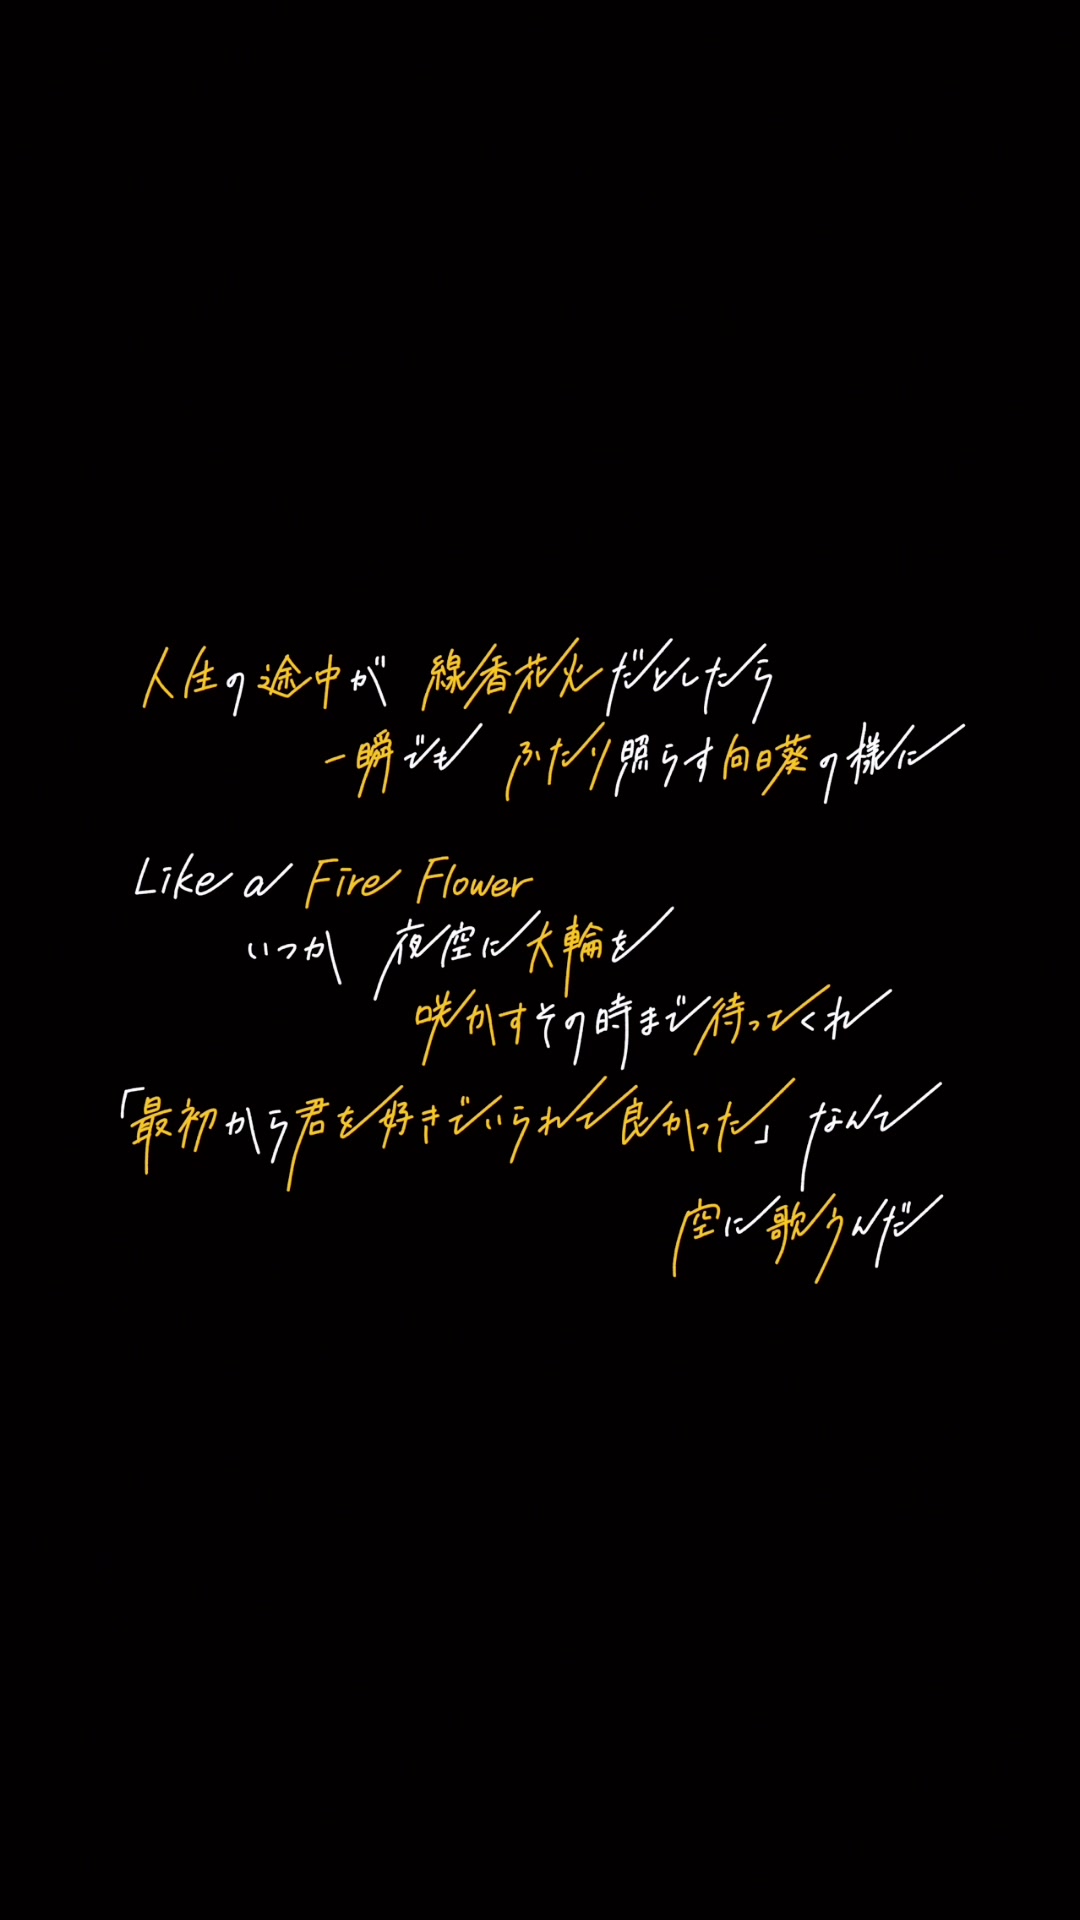 人生の途中が 線香花火だとしたら
一瞬でも ふたり照らす向日葵の様に
Like a Fire Flower
いつか 夜空に大輪を
咲かすその時まで待ってくれ
「最初から君を好きでいられて良かった」なんて
空に歌うんだ